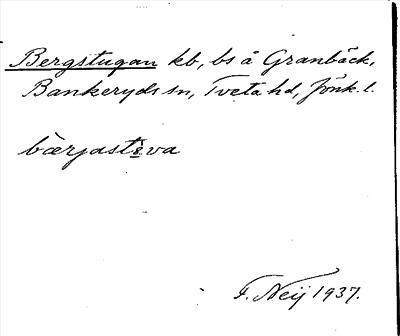 Bergstugan kb, bs å Granbäck,
Bankeryds sn, Tveta hd, Jönk. l.
bærjasts̀va
F. Neij 1937.